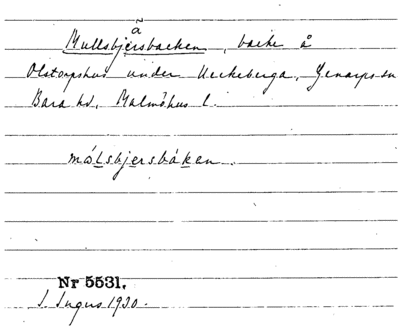 ã
Mullsbjersbacken, backe å
Olstorpshus under Heckeberga, Genarps sn
Bara hd, Malmöhus l.
målsbjersbáken.
Nr 5531.
I. Ingers 1930.